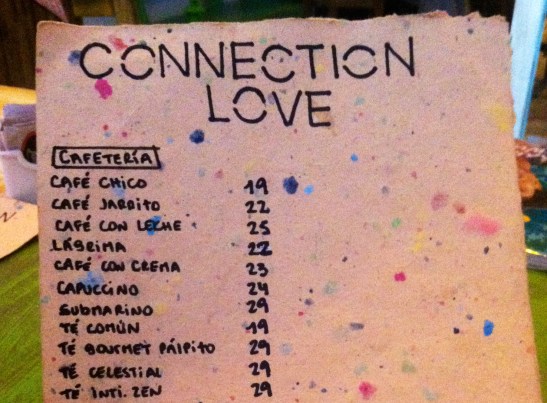 CONNECTION
LOVE
CAFETERÍA
CAFÉ CHICO 19
CAFÉ JARRITO 22
CAFÉ CON LECHE 25
LÁGRIMA 22
CAFÉ CON CREMA 23
CAPUCCINO 24
SUBMARINO 29
TÉ COMÚN 19
TÉ GOURMET PÁLPITO 29
TÉ CELESTIAL 29
TÉ INTI. ZEN 29